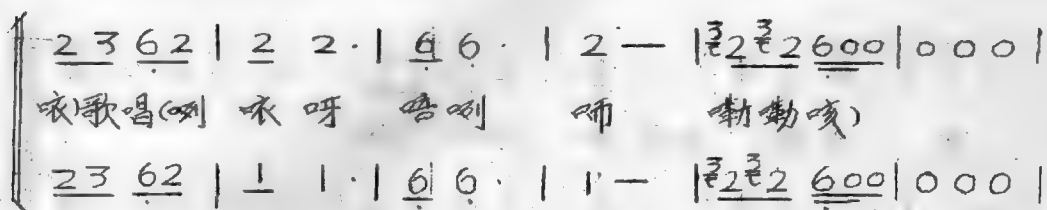 2 3 6 2 | 2 2 · | 6 6 · | 2 — | 3 2 3 2 6 0 0 | 0 0 0 |
咴)歌唱(咧 咴 呀 唔咧 嘞嘞咳)
2 3 6 2 | 1 1 · | 6 6 · | 1 — | 3 2 3 2 6 0 0 | 0 0 0 |